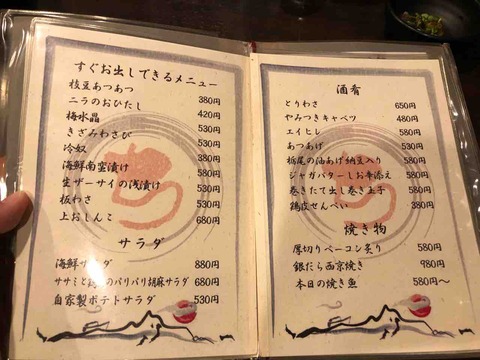 すぐお出しできるメニュー
枝豆あつあつ 380円
ニラのおひたし 420円
梅水晶 530円
きざみわさび 530円
冷奴 530円
海鮮南蛮漬け 580円
生ザーサイの浅漬け 530円
板わさ 530円
上おしんこ 680円
サラダ
海鮮サラダ 880円
ササミと のパリパリ胡麻サラダ 680円
自家製ポテトサラダ 530円
酒肴
とりわさ 650円
やみつきキャベツ 480円
エイヒレ 580円
あつあげ 530円
栃尾の油あげ納豆入り 580円
ジャガバターしお辛添え 580円
巻きたて出し巻き玉子 580円
鶏皮せんべい 380円
焼き物
厚切りベーコン炙り 580円
銀だら西京焼き 980円
本日の焼き魚 580円～